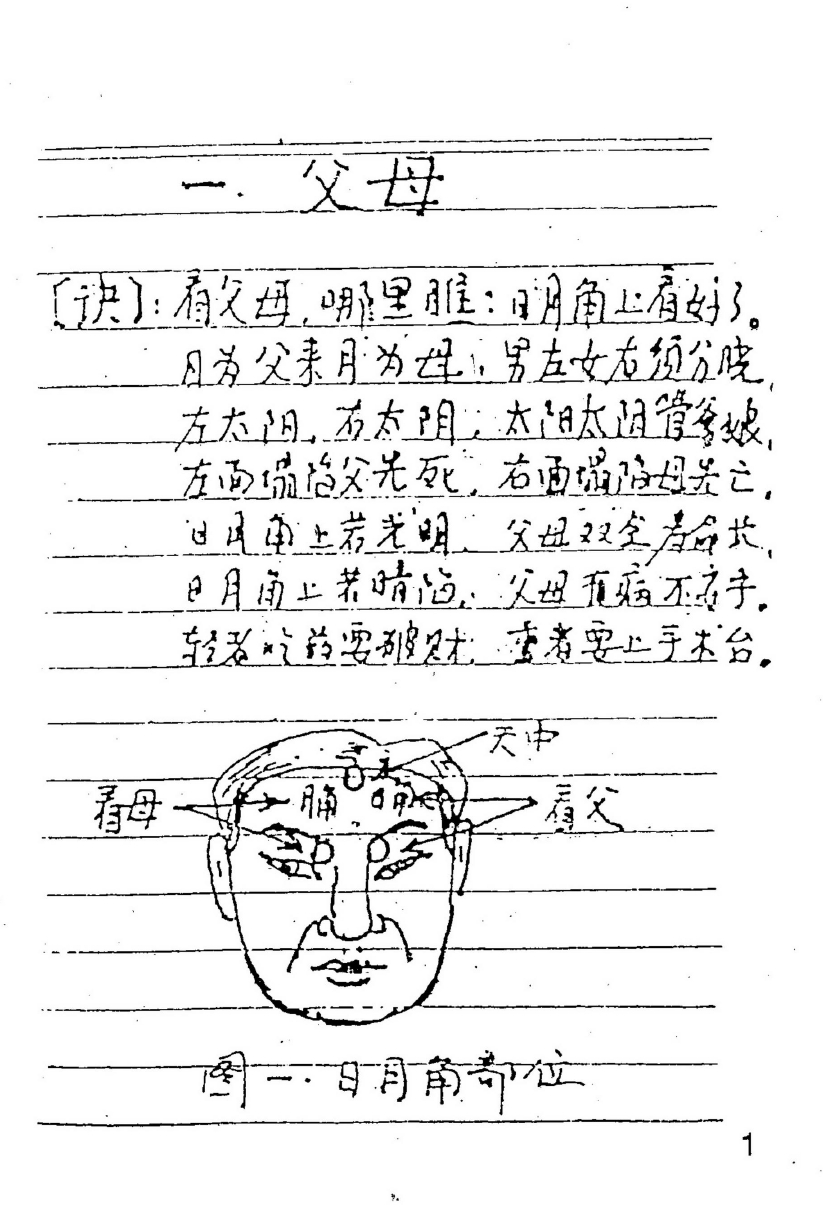 一. 父母
〔诀〕:看父母,哪里瞧:日月角上看好了。
日为父来月为母,男左女右须分晓,
左太阳,右太阴,太阳太阴管爹娘,
左面塌陷父先死,右面塌陷母先亡,
日月角上若光明,父母双全寿命长,
日月角上若暗陷,父母有病不离手。
轻者吃药要破财,重者要上手术台。
天中
看母 月角 日角 看父
图一.日月角部位
1